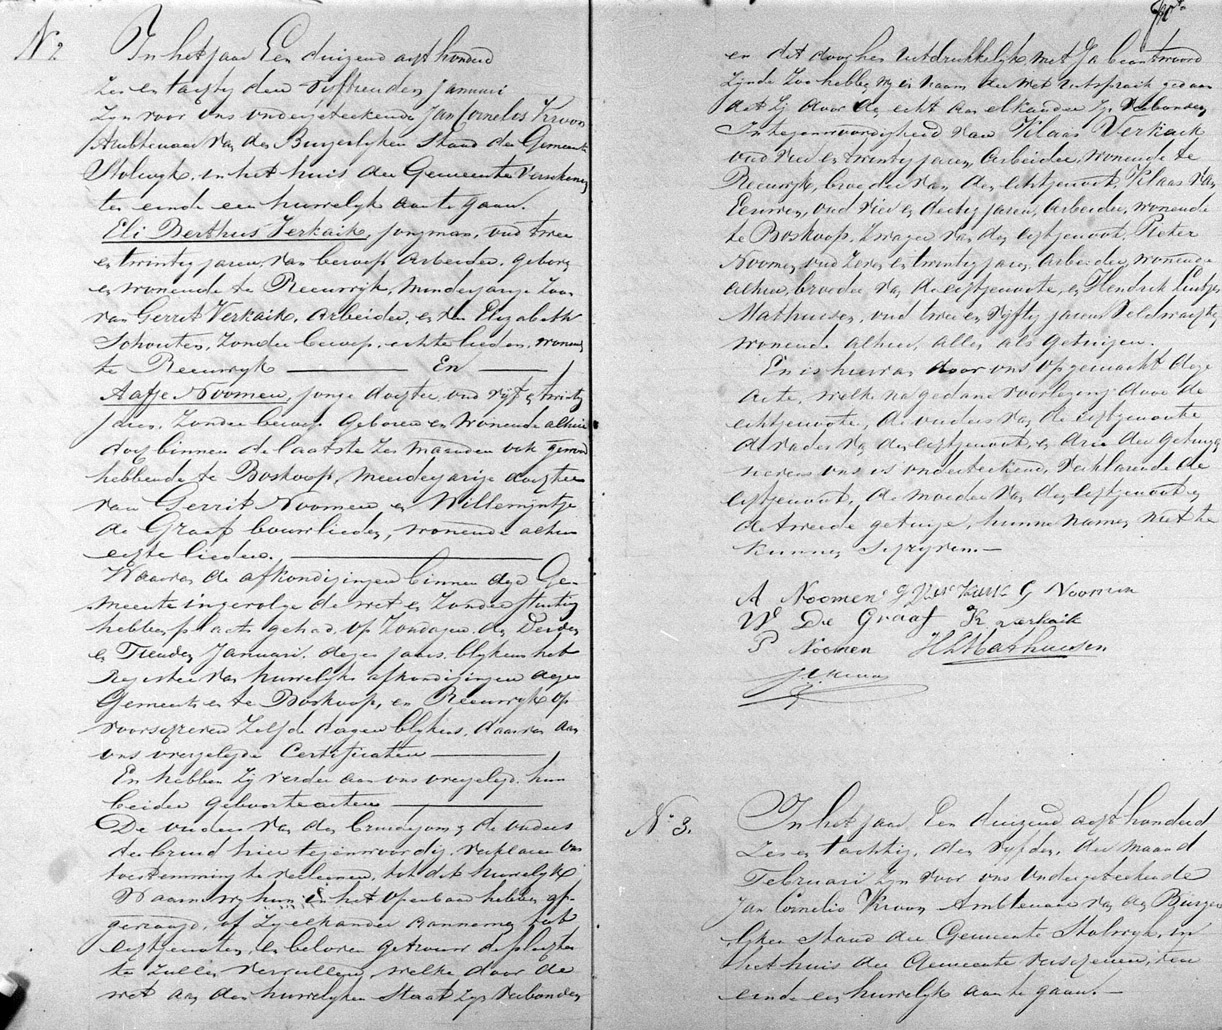 N. 2.
In het jaar Een duizend acht honderd
Zes en tachtig den vijftienden Januari
Zijn voor ons ondergeteekende Jan Cornelis Kroon
Ambtenaar van den Burgerlijken Stand der Gemeente
Stolwijk, in het huis der Gemeente verschenen
ten einde een huwelijk aan te gaan.
Eli Berthus Verkaik, jongman, oud twee
en twintig jaren, van beroep Arbeider, geboren
en wonende te Reeuwijk, minderjarige zoon
van Gerret Verkaik, Arbeider, en van Elizabeth
Schouten, zonder beroep, echtelieden, wonende
te Reeuwijk — En —
Aafje Noomen, jonge dochter, oud vijf en twintig
jaren, zonder beroep, geboren en wonende alhier
doch binnen de laatste zes maanden ook gewoond
hebbende te Boskoop, meerderjarige dochter
van Gerrit Noomen en Willemijntje
de Graaf bouwlieden, wonende alhier
echte lieden. —
Waarvan de afkondigingen binnen deze Ge-
meente ingevolge de wet en zonder stuiting
hebben plaats gehad, op Zondagen den Derden
en Tienden Januari dezes jaars, blijkens het
register van huwelijks afkondigingen dezer
Gemeente en te Boskoop, en Reeuwijk op
voorschreven zelfde dagen blijkens, daarvan aan
ons overgelegde Certificaten —
En hebben zij verder aan ons overgelegd hun
beider geboorteacten —
De ouders van den bruidegom en de ouders
der bruid hier tegenwoordig, verklaren hun
toestemming te verleenen tot dit huwelijk
Waarna wij hun in het openbaar hebben af-
gevraagd, of zij elkander aannemen tot
echtgenoten, en beloven getrouw de pligten
te zullen vervullen, welke door de
wet aan den huwelijken Staat zijn verbonden
en dit door hen uitdrukkelijk met Ja beantwoord
zijnde zoo hebben wij in naam der wet uitspraak gedaan
dat zij door den echt aan elkander zijn verbonden
In tegenwoordigheid van Klaas Verkaik
oud vier en twintig jaren, Arbeider, wonende te
Reeuwijk, broeder van den echtgenoot, Klaas van
Eeuwen, oud vier en dertig jaren, Arbeider, wonende
te Boskoop, zwager van den echtgenoot, Pieter
Noomen, oud zeven en twintig jaren, Arbeider, wonende
alhier, broeder van de echtgenoote, en Hendrik
Mathuesen, oud twee en vijftig jaren Veldwachter
wonende alhier, alles als getuigen.
En is hiervan door ons opgemaakt deze
acte, welke na gedane voorlezing door de
echtgenoote, de ouders van de echtgenoote
de vader van den echtgenoot, en drie der getuigen
nevens ons is onderteekend, verklarende de
echtgenoot, de moeder van den echtgenoot en
de tweede getuige, hunne namen niet te
kunnen schrijven. —
A Noomen G Verkaik G Noomen
W De Graaf K Verkaik
P Noomen HLMathuesen
JCKroon
N. 3.
In het jaar Een duizend acht honderd
Zes en tachtig, den vijfden, der maand
Februari zijn voor ons ondergeteekende
Jan Cornelis Kroon Ambtenaar van den Burger
lijken Stand der Gemeente Stolwijk, in
het huis der Gemeente verschenen, ten
einde een huwelijk aan te gaan. —